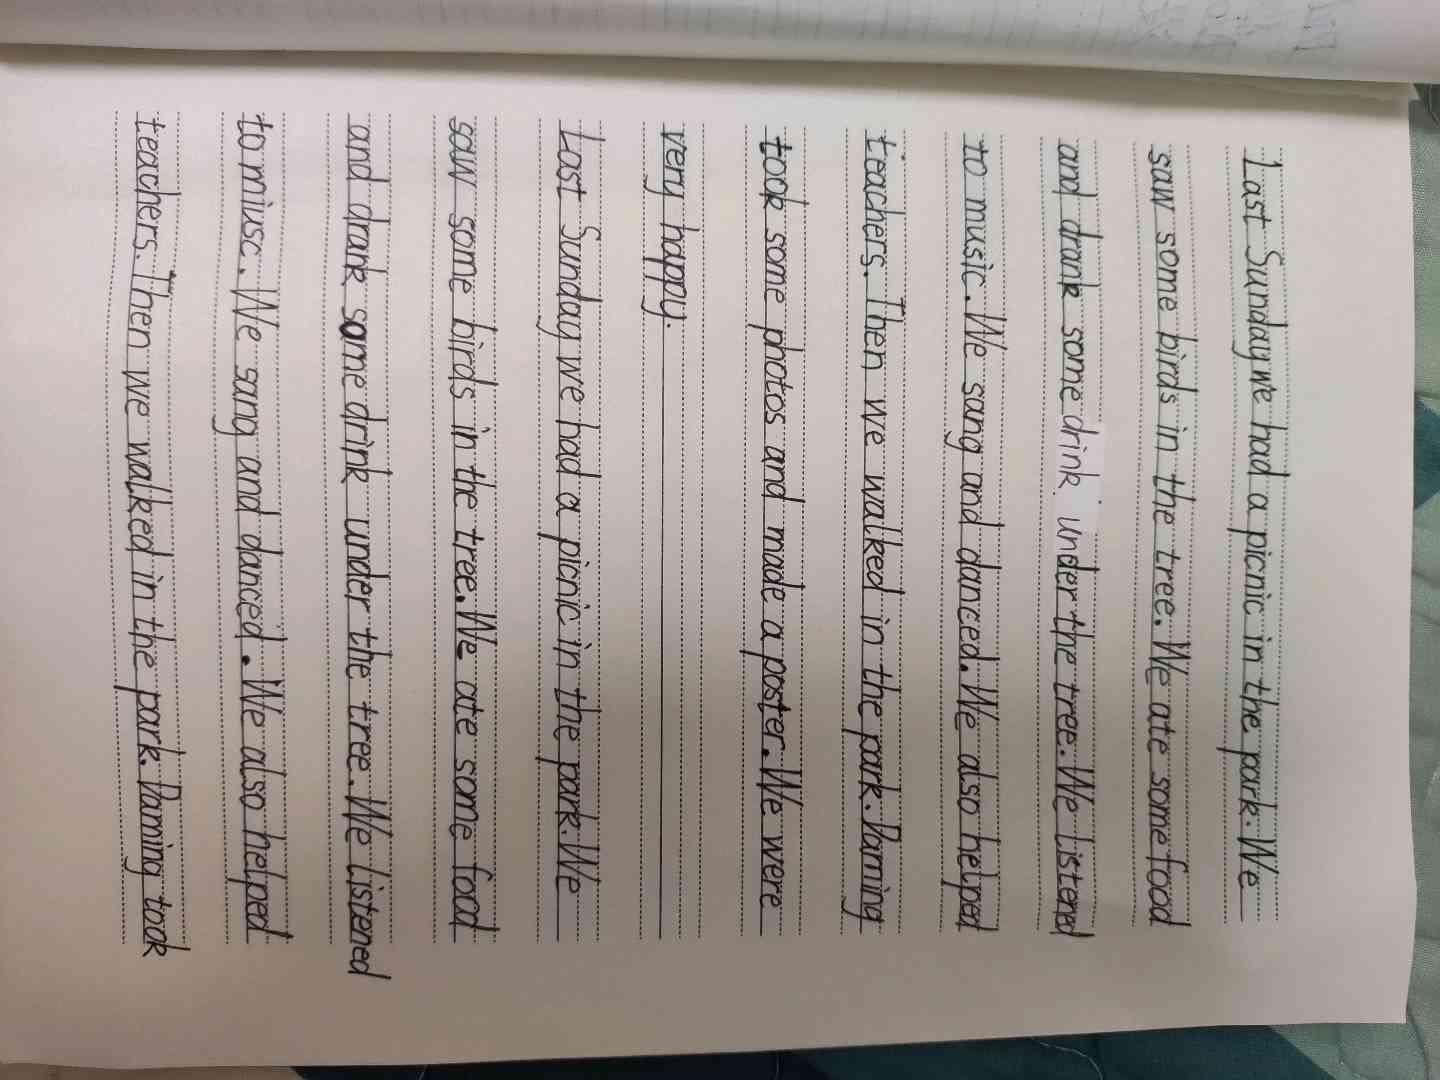 Last Sunday we had a picnic in the park. We
saw some birds in the tree. We ate some food
and drank some drink under the tree. We listened
to music. We sang and danced. We also helped
teachers. Then we walked in the park. Daming
took some photos and made a poster. We were
very happy.
Last Sunday we had a picnic in the park. We
saw some birds in the tree. We ate some food
and drank some drink under the tree. We listened
to miusc. We sang and danced. We also helped
teachers. Then we walked in the park. Daming took